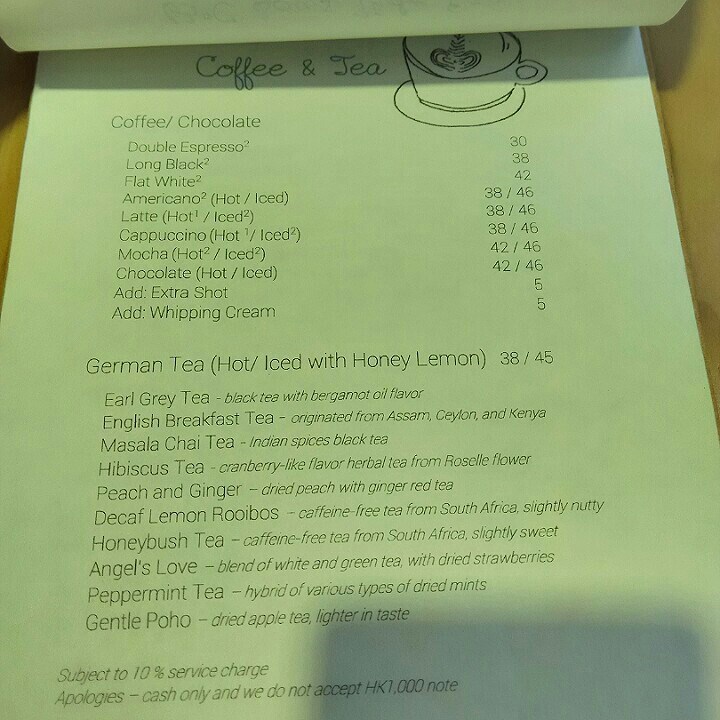 Coffee & Tea
Coffee/ Chocolate
Double Espresso² 30
Long Black² 38
Flat White² 42
Americano² (Hot / Iced) 38 / 46
Latte (Hot¹ / Iced²) 38 / 46
Cappuccino (Hot ¹/ Iced²) 38 / 46
Mocha (Hot² / Iced²) 42 / 46
Chocolate (Hot / Iced) 42 / 46
Add: Extra Shot 5
Add: Whipping Cream 5
German Tea (Hot/ Iced with Honey Lemon) 38 / 45
Earl Grey Tea - black tea with bergamot oil flavor
English Breakfast Tea – originated from Assam, Ceylon, and Kenya
Masala Chai Tea - Indian spices black tea
Hibiscus Tea - cranberry-like flavor herbal tea from Roselle flower
Peach and Ginger – dried peach with ginger red tea
Decaf Lemon Rooibos – caffeine-free tea from South Africa, slightly nutty
Honeybush Tea – caffeine-free tea from South Africa, slightly sweet
Angel's Love – blend of white and green tea, with dried strawberries
Peppermint Tea – hybrid of various types of dried mints
Gentle Poho – dried apple tea, lighter in taste
Subject to 10 % service charge
Apologies – cash only and we do not accept HK1,000 note